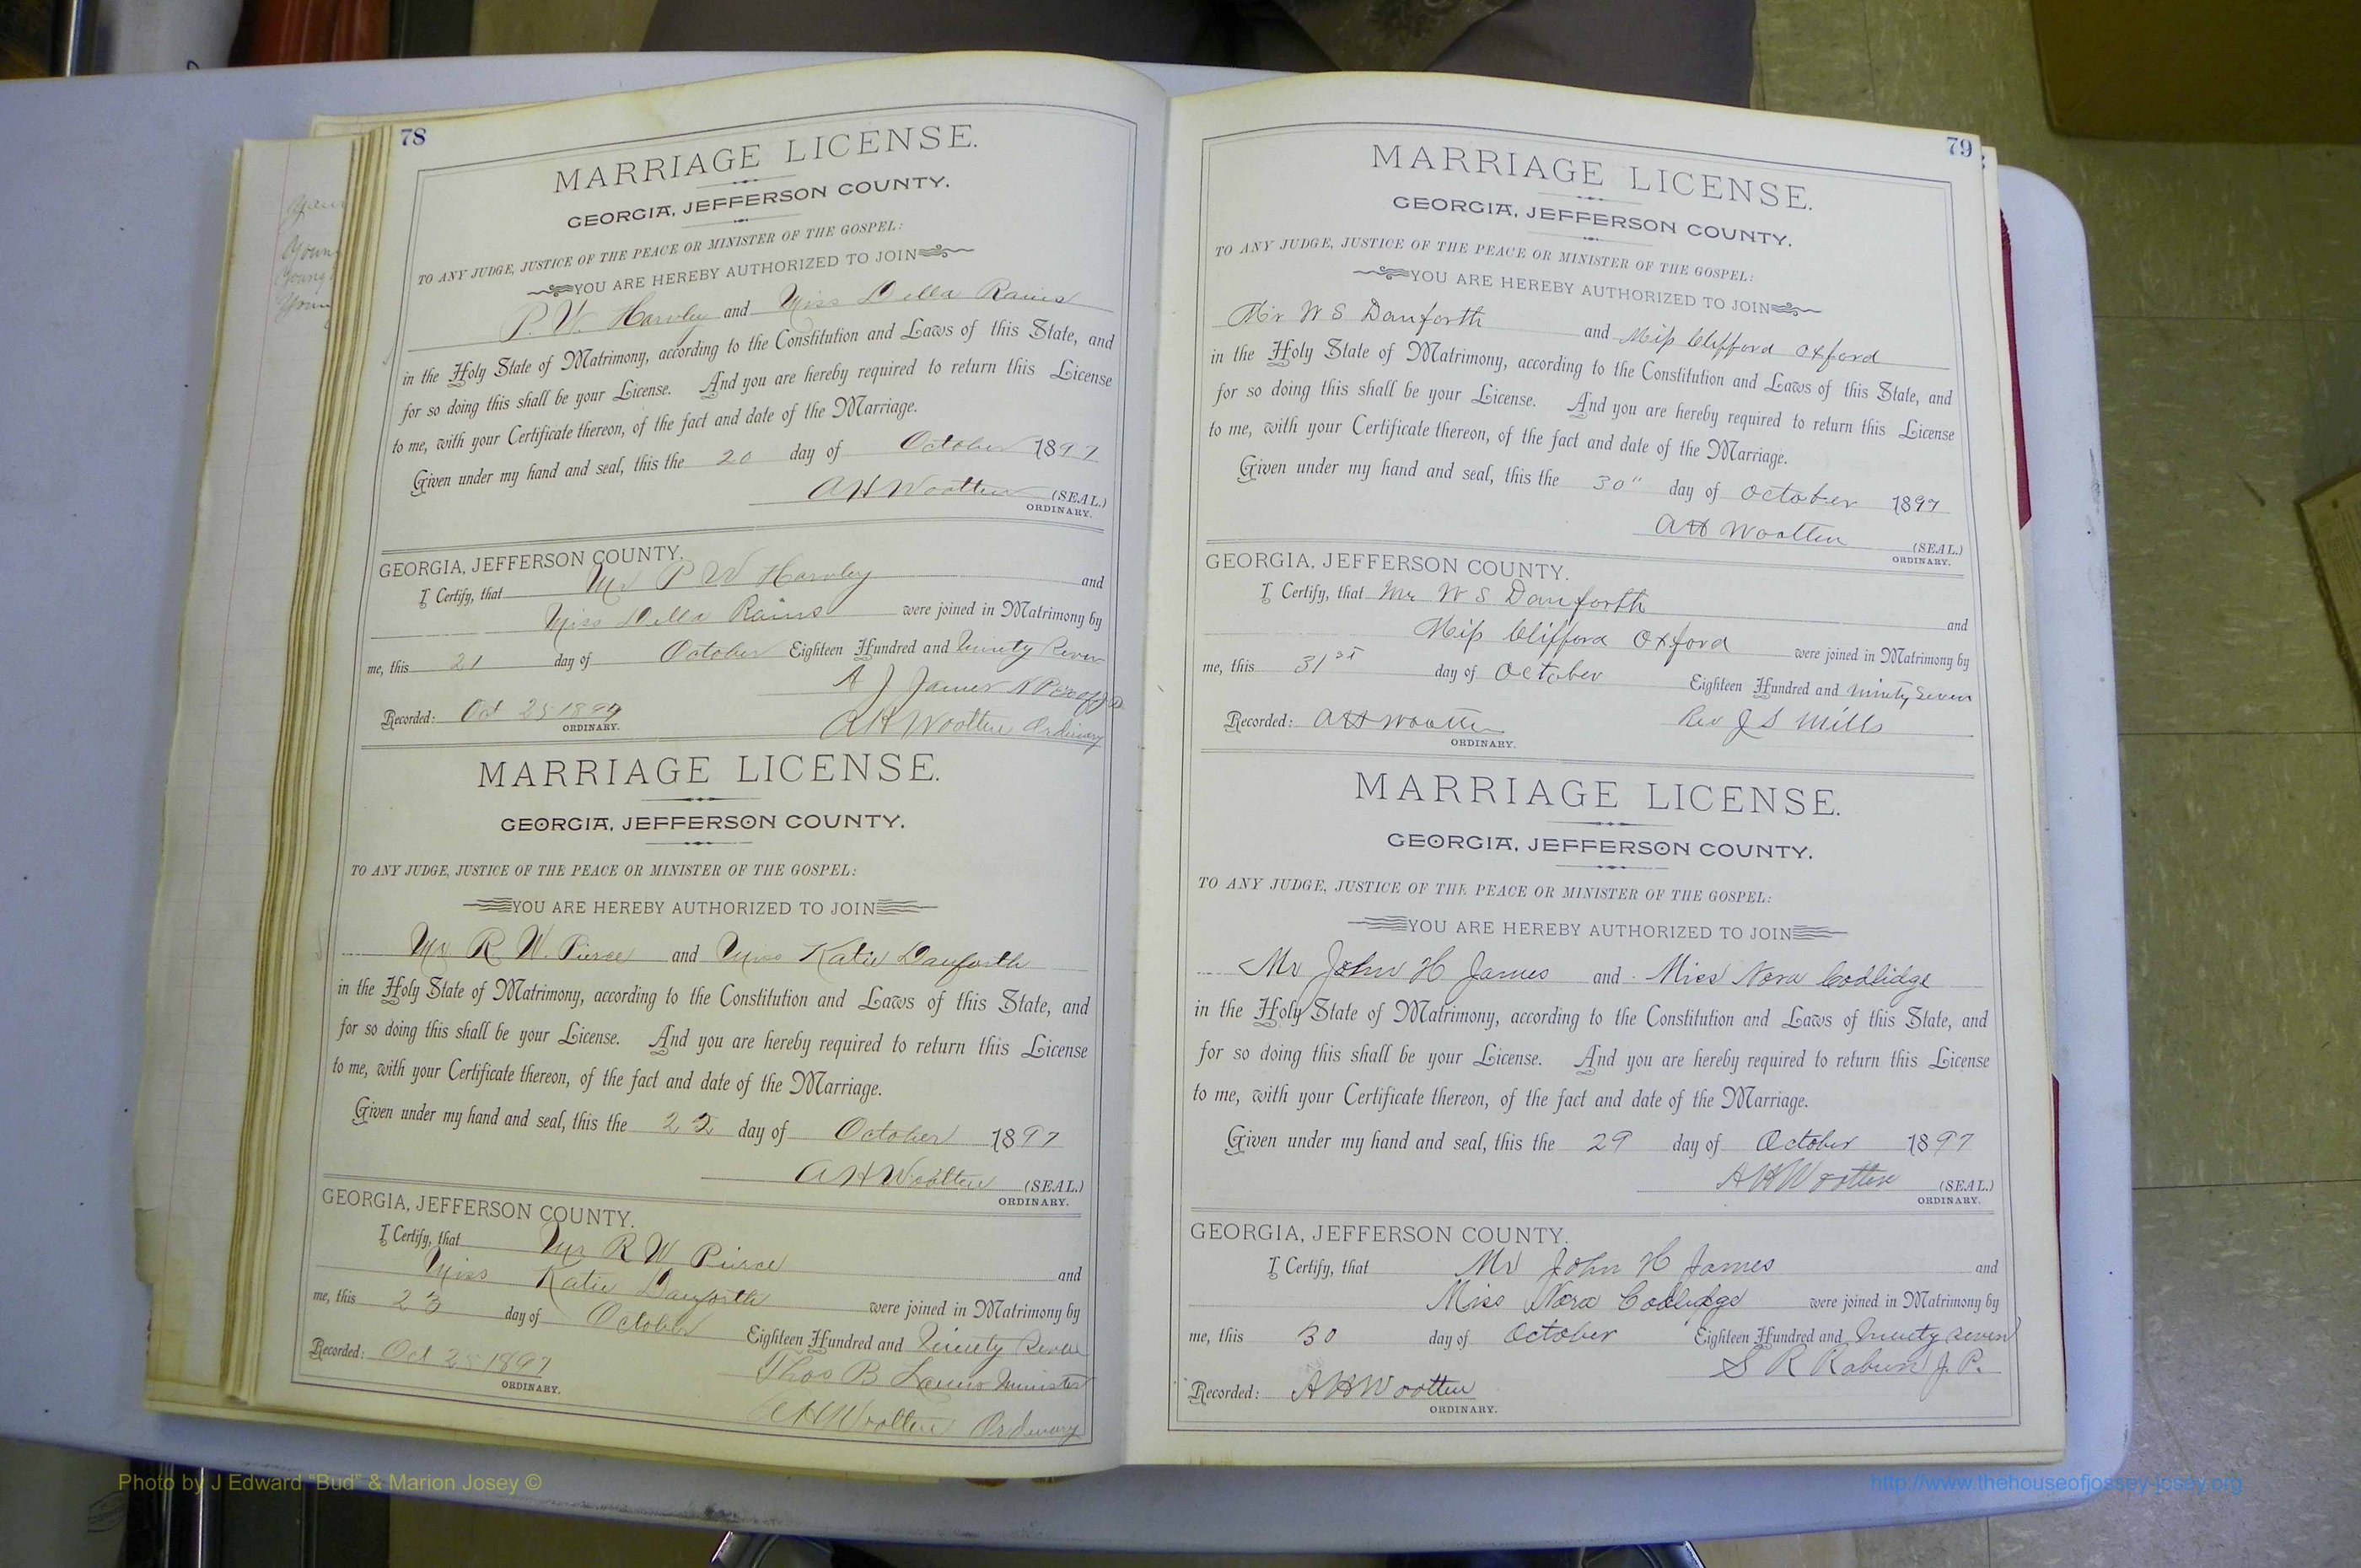 78
MARRIAGE LICENSE.
GEORGIA, JEFFERSON COUNTY.
TO ANY JUDGE, JUSTICE OF THE PEACE OR MINISTER OF THE GOSPEL:
YOU ARE HEREBY AUTHORIZED TO JOIN
P. W. and Miss Della Rains
in the Holy State of Matrimony, according to the Constitution and Laws of this State, and
for so doing this shall be your License. And you are hereby required to return this License
to me, with your Certificate thereon, of the fact and date of the Marriage.
Given under my hand and seal, this the 20 day of October 1897
A H Wootten (SEAL.)
ORDINARY.
GEORGIA, JEFFERSON COUNTY.
I Certify, that Mr P W and
Miss Della Rains were joined in Matrimony by
me, this 21 day of October Eighteen Hundred and Ninety Seven
A J James
Recorded: Oct 25 1897 A H Wootten Ordinary
ORDINARY.
MARRIAGE LICENSE.
GEORGIA, JEFFERSON COUNTY.
TO ANY JUDGE, JUSTICE OF THE PEACE OR MINISTER OF THE GOSPEL:
YOU ARE HEREBY AUTHORIZED TO JOIN
Mr. R. W. Pierce and Miss Katie Danforth
in the Holy State of Matrimony, according to the Constitution and Laws of this State, and
for so doing this shall be your License. And you are hereby required to return this License
to me, with your Certificate thereon, of the fact and date of the Marriage.
Given under my hand and seal, this the 22 day of October 1897
A H Wootten (SEAL.)
ORDINARY.
GEORGIA, JEFFERSON COUNTY.
I Certify, that Mr R W Pierce and
Miss Katie Danforth were joined in Matrimony by
me, this 23 day of October Eighteen Hundred and Ninety Seven
Recorded: Oct 25 1897 Thos B Minister
ORDINARY.
A H Wootten Ordinary
79
MARRIAGE LICENSE.
GEORGIA, JEFFERSON COUNTY.
TO ANY JUDGE, JUSTICE OF THE PEACE OR MINISTER OF THE GOSPEL:
YOU ARE HEREBY AUTHORIZED TO JOIN
Mr W S Danforth and Miss Clifford Oxford
in the Holy State of Matrimony, according to the Constitution and Laws of this State, and
for so doing this shall be your License. And you are hereby required to return this License
to me, with your Certificate thereon, of the fact and date of the Marriage.
Given under my hand and seal, this the 30" day of October 1897
A H Wootten (SEAL.)
ORDINARY.
GEORGIA, JEFFERSON COUNTY.
I Certify, that Mr W S Danforth and
Miss Clifford Oxford were joined in Matrimony by
me, this 31st day of October Eighteen Hundred and Ninety Seven
Recorded: A H Wootten Rev J S Mills
ORDINARY.
MARRIAGE LICENSE.
GEORGIA, JEFFERSON COUNTY.
TO ANY JUDGE, JUSTICE OF THE PEACE OR MINISTER OF THE GOSPEL:
YOU ARE HEREBY AUTHORIZED TO JOIN
Mr John H James and Miss Nora Coolidge
in the Holy State of Matrimony, according to the Constitution and Laws of this State, and
for so doing this shall be your License. And you are hereby required to return this License
to me, with your Certificate thereon, of the fact and date of the Marriage.
Given under my hand and seal, this the 29 day of October 1897
A H Wootten (SEAL.)
ORDINARY.
GEORGIA, JEFFERSON COUNTY.
I Certify, that Mr John H James and
Miss Nora Coolidge were joined in Matrimony by
me, this 30 day of October Eighteen Hundred and Ninety Seven
S R Rabun J. P.
Recorded: A H Wootten
ORDINARY.
Photo by J Edward "Bud" & Marion Josey ©
http://www.thehouseofjossey-josey.org